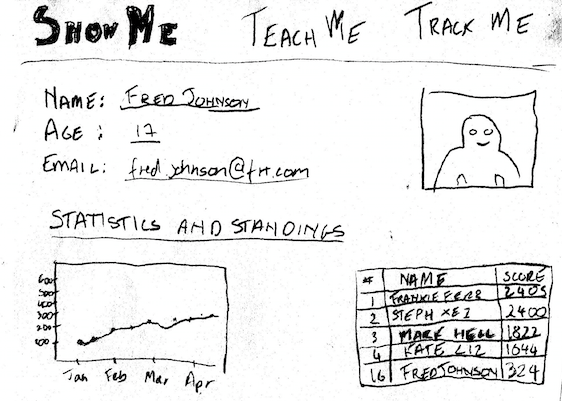 SHOW ME TEACH ME TRACK ME
NAME: FRED JOHNSON
AGE: 17
EMAIL:
STATISTICS AND STANDINGS
600
500
400
300
200
100
Jan Feb Mar Apr
# NAME SCORE
1 FRANKIE 2405
2 STEPH 2400
3 MARK HELL 1822
4 KATE LIZ 1644
16 FRED JOHNSON 324